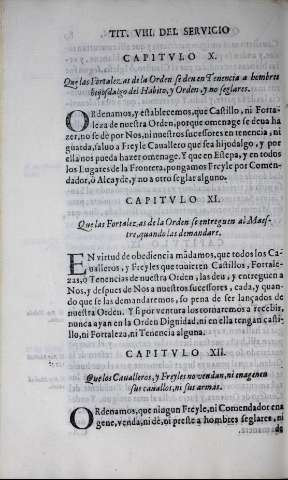 TIT. VIII. DEL SERVICIO
CAPITVLO X.
Que las Fortalezas de la Orden se den en Tenencia a hombres
hijosdalgo del Habito, y Orden, y no seglares.
ORdenamos, y establecemos, que Castillo, ni Forta-
leza de nuestra Orden, porque omenage se deua ha
zer, no se dè por Nos, ni nuestros sucessores en tenencia, ni
guarda, saluo a Freyle Cauallero que sea hijodalgo, y por
ella nos pueda hazer omenage. Y que en Estepa, y en todos
los Lugares de la Frontera, pongamos Freyle por Comen-
dador, ò Alcayde, y no a otro seglar alguno.
CAPITVLO XI.
Que las Fortalezas de la Orden se entreguen al Maes-
tre, quando las demandare.
EN virtud de obediencia mãdamos, que todos los Ca-
ualleros, y Freyles que tuuieren Castillos, Fortale-
zas, ò Tenencias de nuestra Orden, las den, y entreguen a
Nos, y despues de Nos a nuestros sucessores, cada, y quan-
do que se las demandaremos, so pena de ser lançados de
nuestra Orden. Y si por ventura los tornaremos a recebir,
nunca ayan en la Orden Dignidad, ni en ella tengan casti-
llo, ni Fortaleza, ni Tenencia alguna.
CAPITVLO XII.
Que los Caualleros, y Freyles no vendan, ni enagenen
sus cauallos, ni sus armas.
ORdenamos, que ningun Freyle, ni Comendador ena
gene, venda, ni dè, ni preste a hombres seglares, ni
de